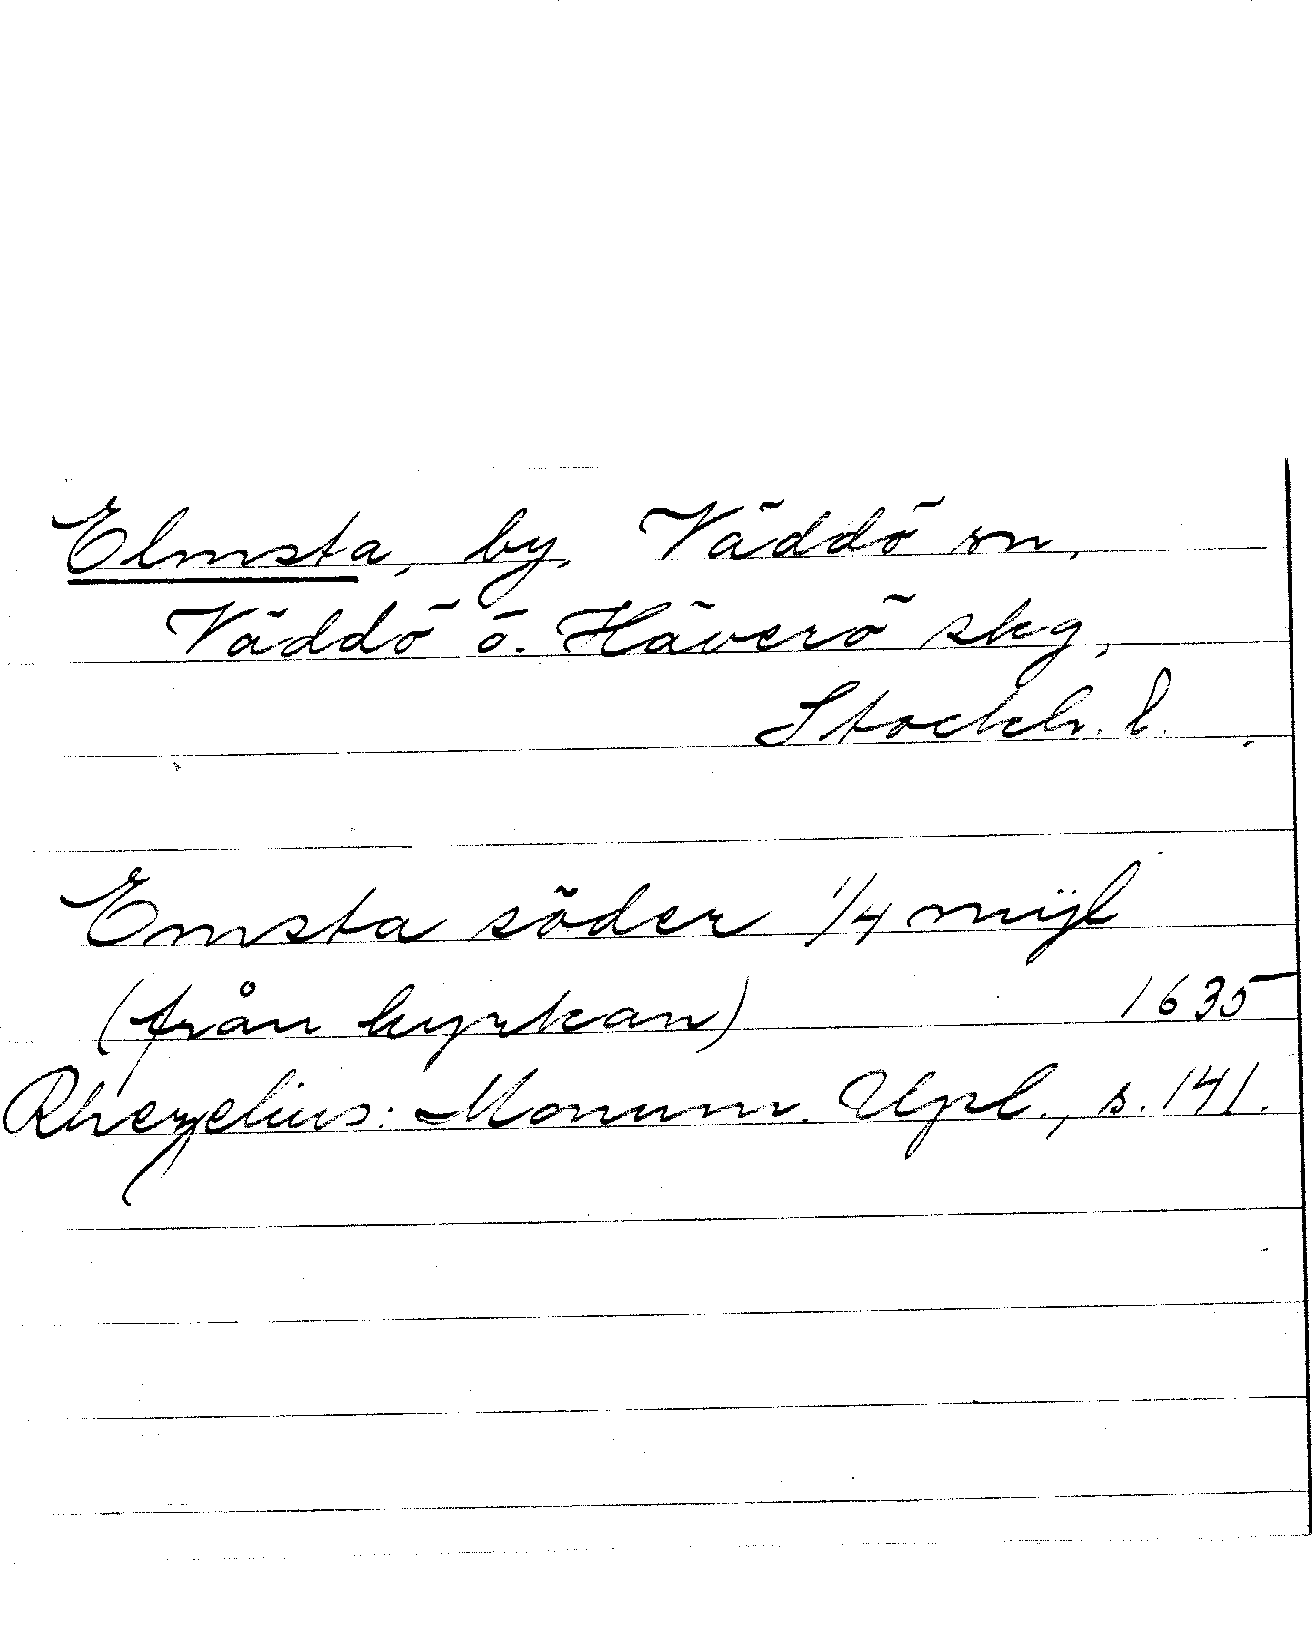 Elmsta, by, Väddö sn,
Väddö o. Häverö skg,
Stockh. l.
Emsta söder 1/4 mijl
(från kyrkan) 1635
Rhezelius: Monum. Upl., s. 141.